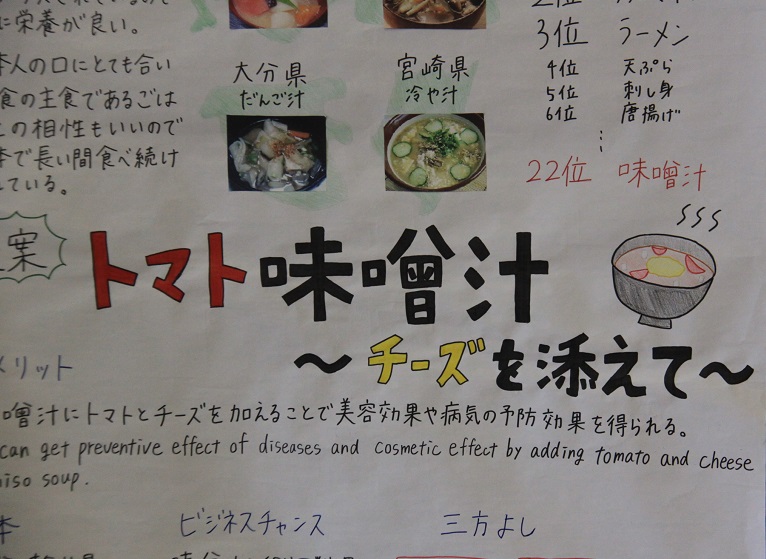 に栄養が良い。
本人の口にとても合い
食の主食であるごは
との相性もいいので
本で長い間食べ続け
ている。
大分県
だんご汁
宮崎県
冷や汁
3位 ラーメン
4位 天ぷら
5位 刺し身
6位 唐揚げ
22位 味噌汁
案
トマト味噌汁
～チーズを添えて～
メリット
噌汁にトマトとチーズを加えることで美容効果や病気の予防効果を得られる。
can get preventive effect of diseases and cosmetic effect by adding tomato and cheese
miso soup.
本
ビジネスチャンス
三方よし